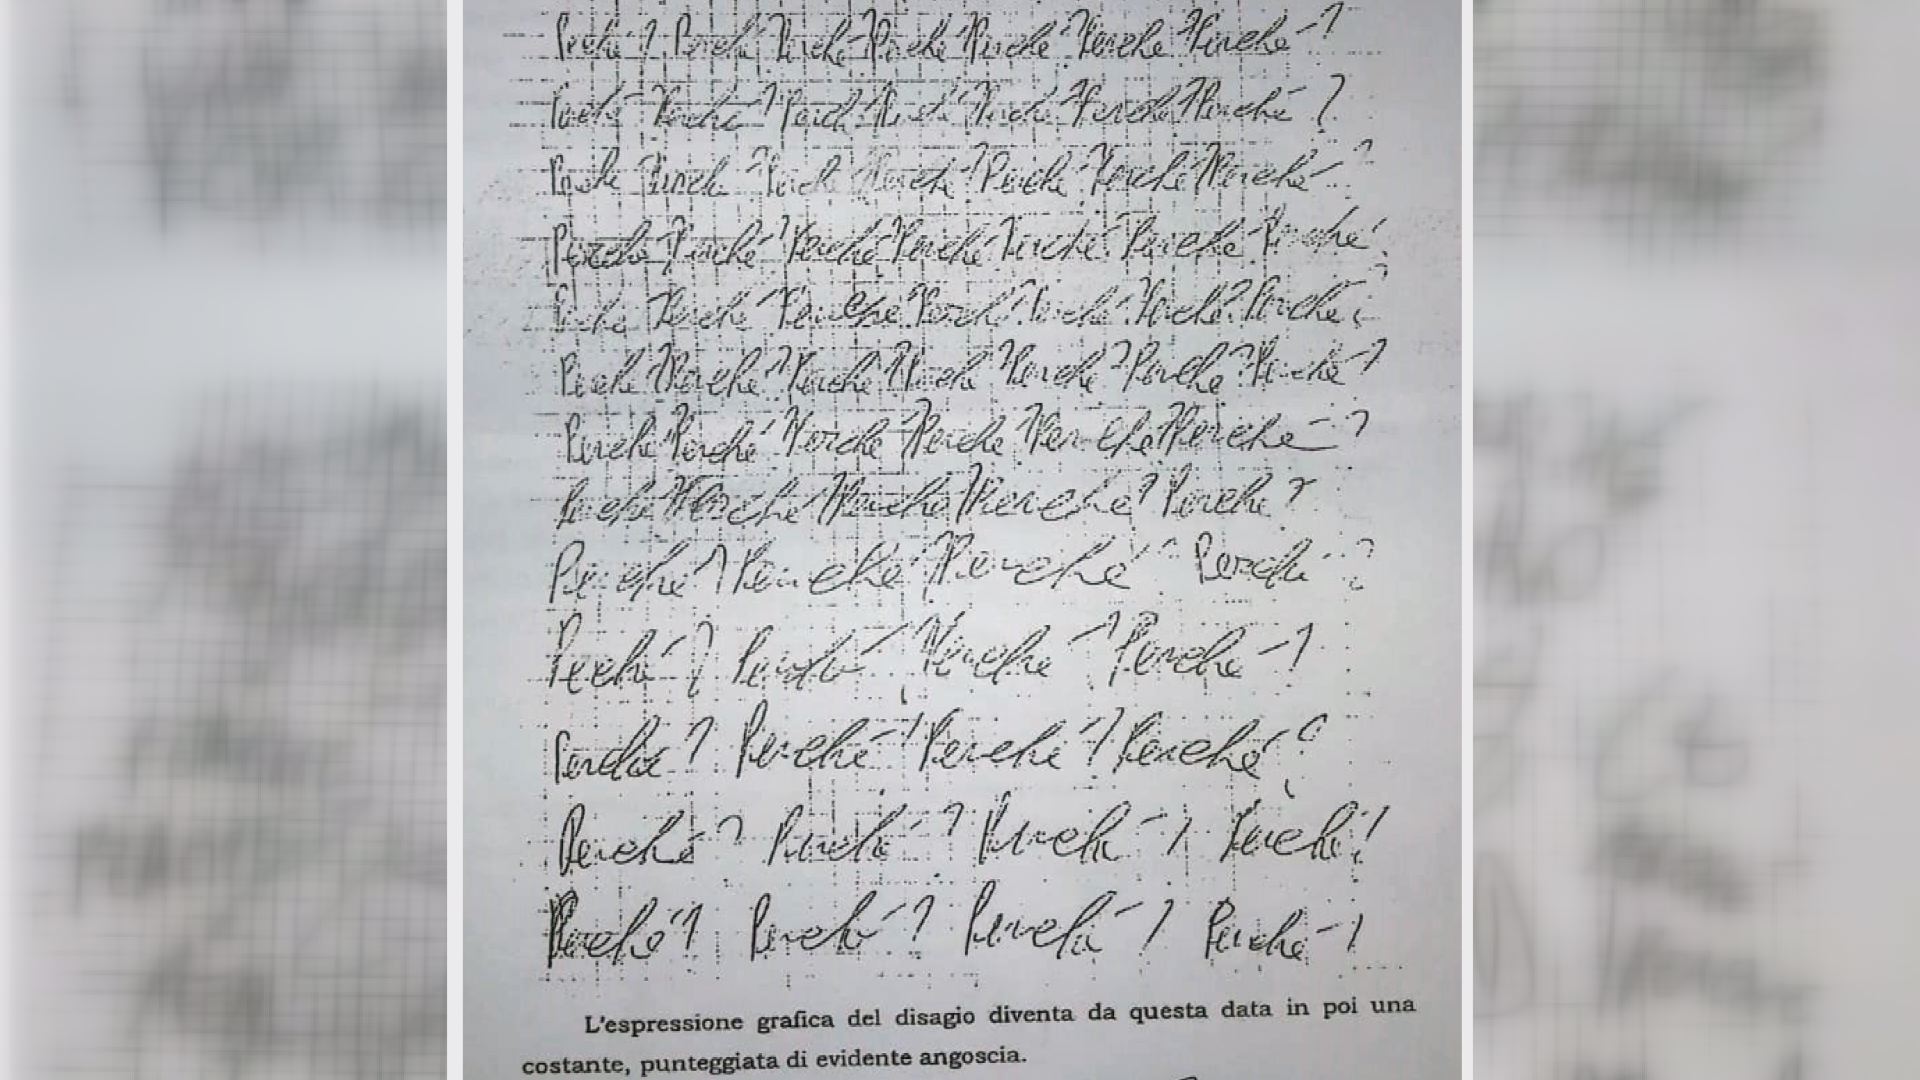 Perché? Perché Perché Perché? Perché? Perché? Perché?
Perché Perché? Perché Perché? Perché? Perché? Perché?
Perché Perché? Perché Perché? Perché? Perché? Perché?
Perché Perché? Perché Perché? Perché? Perché? Perché?
Perché Perché? Perché Perché? Perché? Perché? Perché?
Perché? Perché? Perché? Perché? Perché? Perché? Perché?
Perché? Perché? Perché? Perché? Perché? Perché?
Perché? Perché? Perché? Perché? Perché?
Perché? Perché? Perché? Perché?
Perché? Perché? Perché? Perché?
Perché? Perché? Perché? Perché?
Perché? Perché? Perché? Perché?
Perché? Perché? Perché? Perché?
L'espressione grafica del disagio diventa da questa data in poi una
costante, punteggiata di evidente angoscia.